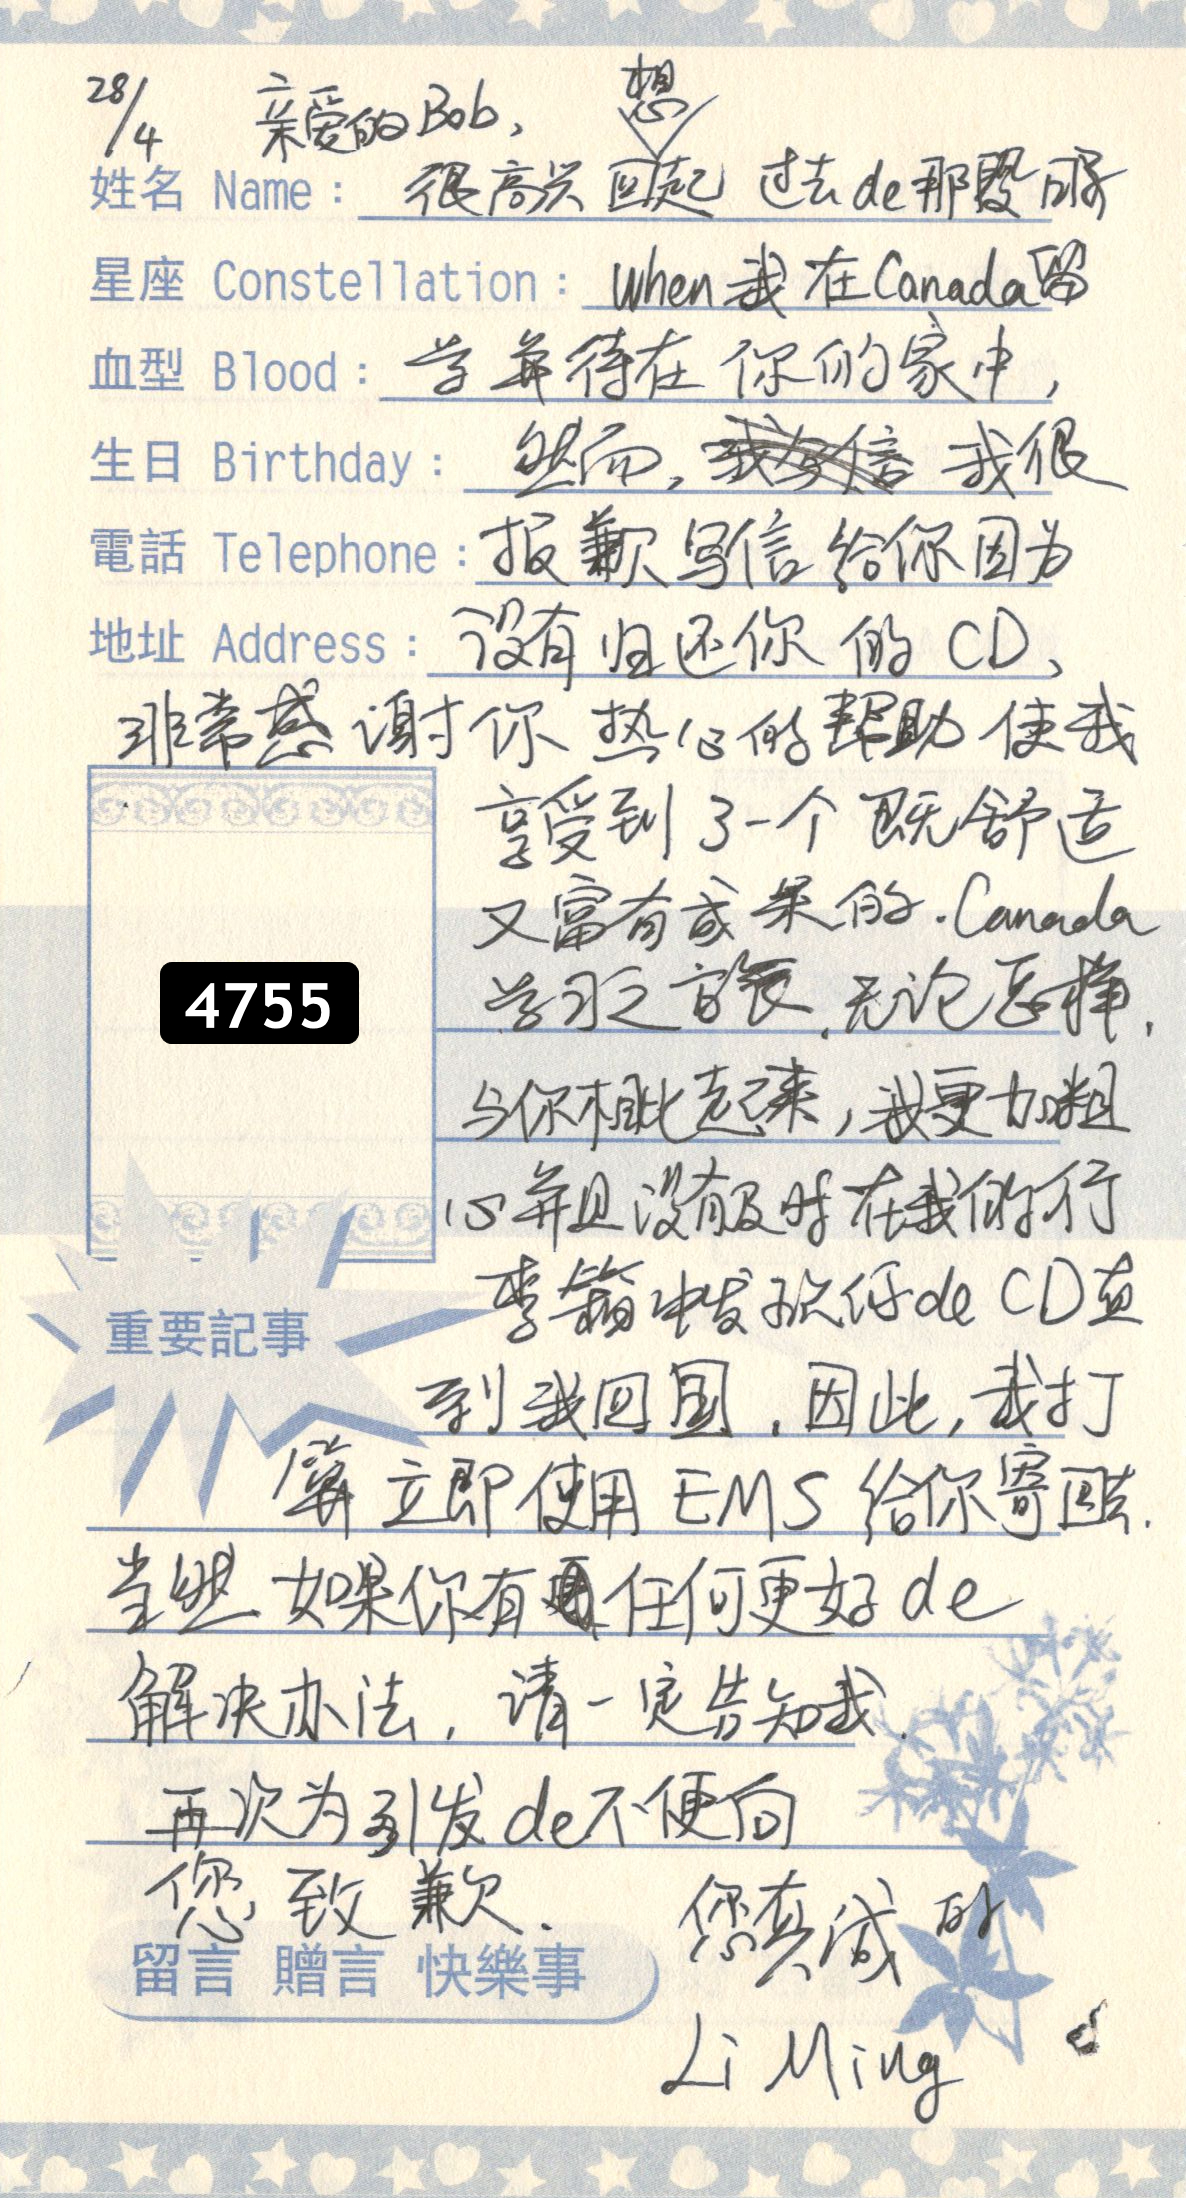 28/4 亲爱的Bob, 想
姓名 Name: 很高兴回起 过去de那段时
星座 Constellation: When 我 在Canada留
血型 Blood: 学 并待在 你的家中,
生日 Birthday: 然而, 我很
電話 Telephone: 报歉写信给你因为
地址 Address: 没有归还你 的 CD、
非常感谢你 热心的帮助 使我
享受到了一个 既舒适
又富有成果的.Canada
学习之 .无论怎样,
与你相比起来,我更加粗
心并且没有及时在我的行
李箱中发现你de CD直
到我回国.因此,我打
算立即使用 EMS 给你寄回去.
当然 如果你有 任何更好 de
解决办法, 请一定告知我.
再次为引发de不便向
您 致 歉. 您真诚的
Li Ming
4755
重要記事
留言 贈言 快樂事